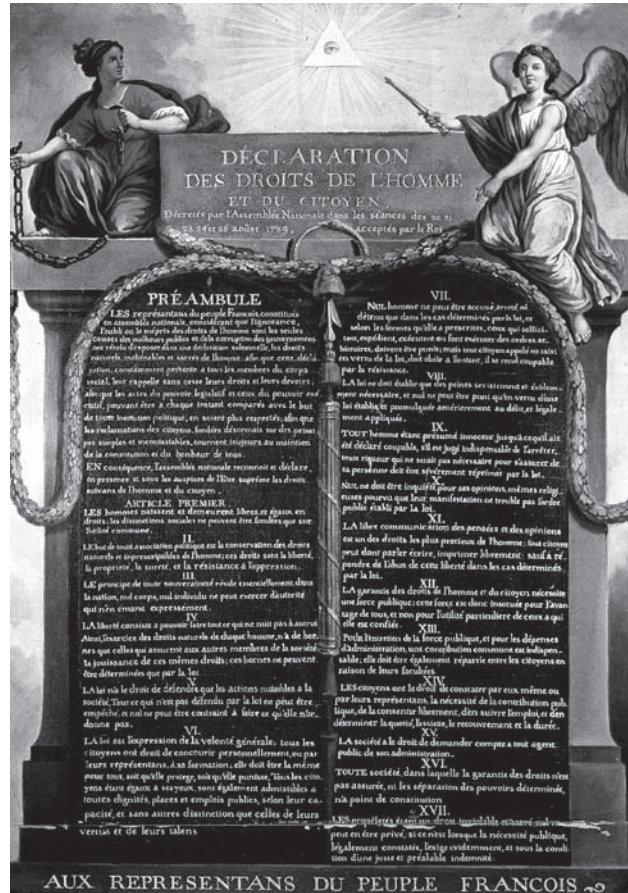 DÉCLARATION
DES DROITS DE L'HOMME
ET DU CITOYEN,
Décretés par l'Assemblée Nationale dans les séances des 20. 21
23. 24 et 26 août 1789, acceptés par le Roi
PRÉAMBULE
LES représentans du peuple François, constitués
en assemblée nationale, considérant que l'ignorance,
l'oubli ou le mépris des droits de l'homme sont les seules
causes des malheurs publics et de la corruption des gouvernemens
ont résolu d'exposer dans une déclaration solemnelle, les droits
naturels, inaliénables et sacrés de l'homme; afin que cette décla-
ration, constamment présente a tous les membres du corps
social, leur rappelle sans cesse leurs droits et leurs devoirs;
afin que les actes du pouvoir législatif et ceux du pouvoir exé-
cutif, pouvant être à chaque instant comparés avec le but
de toute institution politique, en soient plus respectés; afin que
les réclamations des citoyens, fondées désormais sur des princi-
pes simples et incontestables, tournent toujours au maintien
de la constitution et du bonheur de tous.
EN conséquence, l'assemblée nationale reconnoit et déclare,
en presence et sous les auspices de l'Etre suprême les droits
suivans de l'homme et du citoyen.
ARTICLE PREMIER.
LES hommes naissent et demeurent libres et égaux en
droits; les distinctions sociales ne peuvent être fondées que sur
l'utilité commune.
II.
LE but de toute association politique est la conservation des droits
naturels et imprescriptibles de l'homme; ces droits sont la liberté,
la propriété, la sureté, et la résistance à l'oppression.
III.
LE principe de toute souveraineté réside essentiellement dans
la nation, nul corps, nul individu ne peut exercer d'autorité
qui n'en émane expressement.
IV.
LA liberté consiste a pouvoir faire tout ce qui ne nuit pas à autrui
Ainsi, l'exercice des droits naturels de chaque homme, n'a de bor-
nes que celles qui assurent aux autres membres de la société
la jouissance de ces mêmes droits; ces bornes ne peuvent
être déterminées que par la loi.
V.
LA loi n'a le droit de défendre que les actions nuisibles a la
société. Tout ce qui n'est pas défendu par la loi ne peut être
empêché, et nul ne peut être contraint à faire ce qu'elle n'or-
donne pas.
VI.
LA loi est l'expression de la volonté générale; tous les
citoyens ont droit de concourir personnellement, ou par
leurs représentans, à sa formation; elle doit être la même
pour tous, soit qu'elle protege, soit qu'elle punisse. Tous les cito-
yens étant égaux à ses yeux, sont également admissibles a
toutes dignités, places et emplois publics, selon leur ca-
pacité, et sans autres distinction que celles de leurs
vertus et de leurs talens
VII.
NUL homme ne peut être accusé, arreté, ni
détenu que dans les cas déterminés par la loi, et
selon les formes qu'elle a prescrites, ceux qui sollici-
tent, expédient, exécutent ou font exécuter des ordres ar-
bitraires, doivent être punis; mais tout citoyen appelé ou saisi
en vertu de la loi, doit obéir a l'instant, il se rend coupable
par la résistance.
VIII.
LA loi ne doit établir que des peines strictement et évidem-
ment nécessaire, et nul ne peut être puni qu'en vertu d'une
loi établie, et promulguée antérierement au délit, et légale-
ment appliquée.
IX.
TOUT homme étant présumé innocent jusqu'a ce qu'il ait
été déclaré coupable, s'il est jugé indispensable de l'arrêter,
toute rigueur qui ne serait pas nécessaire pour s'assurer de
sa personne doit être sévèrement réprimée par la loi.
X.
NUL ne doit être inquiété pour ses opinions, mêmes religi-
euses pourvu que leur manifestation ne trouble pas l'ordre
public établi par la loi.
XI.
LA libre communication des pensées et des opinions
est un des droits les plus precieux de l'homme; tout citoyen
peut dont parler écrire, imprimer librement: sauf à ré-
pondre de l'abus de cette liberté dans les cas déterminés
par la loi.
XII.
LA garantie des droits de l'homme et du citoyen nécessite
une force publique: cette force est donc instituée pour l'avan-
tage de tous, et non pour l'utilité particuliere de ceux a qui
elle est confiée.
XIII.
Pour l'entretien de la force publique, et pour les dépenses
d'administration, une contribution commune est indispen-
sable; elle doit être également répartie entre les citoyens en
raison de leurs facultées
XIV.
LES citoyens ont le droit de constater par eux même ou
par leurs représentans, la nécessité de la contribution pub-
lique, de la consentir librement, d'en suivre l'emploi, et d'en
déterminer la quotité, l'assiette, le recouvrement et la durée.
XV.
LA société a le droit de demander compte a tout agent
public de son administration.
XVI.
TOUTE société, dans laquelle la garantie des droits n'est
pas assuré, ni les séparation des pouvoirs déterminée,
n'a point de constitution
XVII.
LES propriétés étant un droit inviolable et sacré, nul ne
peut en être privé, si ce n'est lorsque la nécessité publique,
légalement constatée, l'exige evidemment, et sous la condi-
tion d'une juste et préalable indemnité.
AUX REPRESENTANS DU PEUPLE FRANCOIS